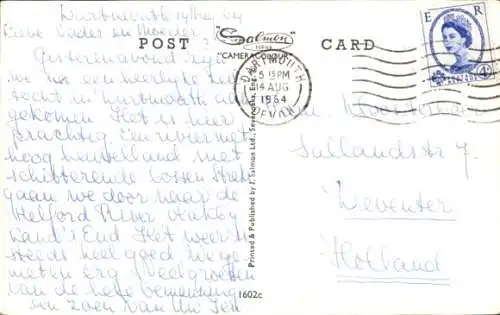 Lieve Vader en Moeder,
Gisterenavond zijn
we na een heerlijke
tocht in Dartmouth
gekomen. Het is hier
prachtig Een rivier met
hoog heuvelland met
schitterende bossen
gaan we door naar de
Helford River vlakbij
Land's End Het weer is
steeds heel goed
en erg veel groeten
van de hele bemanning
en een zoen van Uw
POST
Salmon
SERIES
"CAMERACOLOUR"
CARD
Printed & Published by J. Salmon Ltd., Sevenoaks, Eng.
1602c
DARTMOUTH
5 15 PM
14 AUG
1964
DEVON
E R
4D
Sallandstr 7.
Deventer
Holland